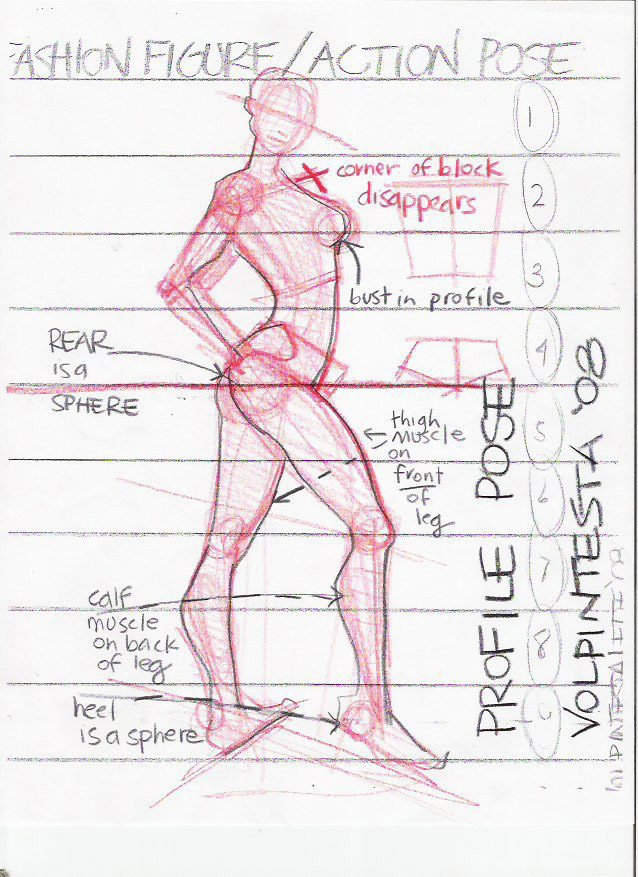 FASHION FIGURE/ACTION POSE
1
corner of block
disappears
2
3
bust in profile
REAR
is a
SPHERE
4
thigh
muscle
on
front
of
leg
5
6
7
calf
muscle
on back
of leg
8
heel
is a sphere
PROFILE POSE
VOLPINTESTA '08